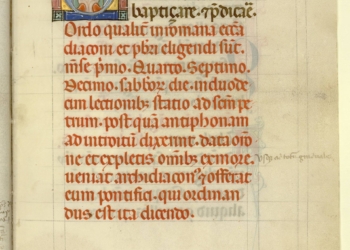 baptiçare. & p̄dicāe.
Ordo qualit̄ in romana ecc̄a
diaconi et pb̄ri eligendi sūt.
m̄se p̄mo. Quarto. Septimo.
Decimo. sabbor̄ die. in duode
cim lectionib; statio ad scm̄ pe
trum. postquā antiphonam
ad introitū dixerint. data orō
ne et expletis om̄ib; ex more.
ueniat archidiacon᷒ & offerat
eum pontifici. qui ordinan
dus est ita dicendo.